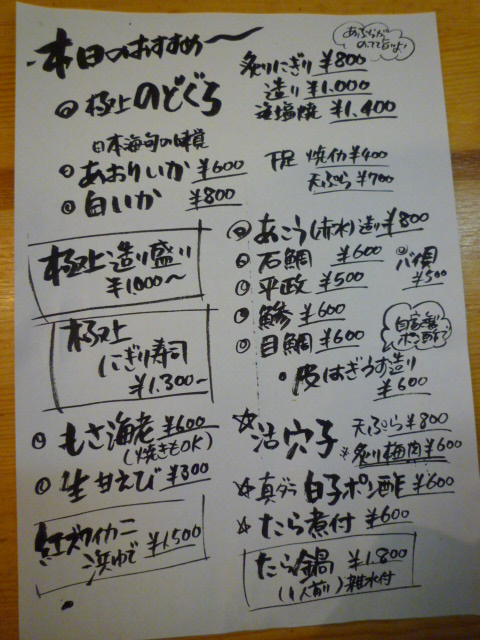 本日のおすすめ〜
あぶらが
のってますよ!
極上のどぐろ
炙りにぎり ¥800
造り ¥1,000
塩焼 ¥1,400
日本海旬の味覚
あおりいか ¥600
白いか ¥800
下足 焼イカ ¥400
天ぷら ¥700
極上造り盛り
¥1000〜
極上
にぎり寿司
¥1.300〜
もさ海老 ¥600
(焼きもOK)
生甘えび ¥300
紅ズワイカニ
浜ゆで ¥1,500
あこう(赤水)造り ¥800
石鯛 ¥600
平政 ¥500
鯵 ¥600
目鯛 ¥600
¥500
自家製
ポン酢で
皮はぎうす造り
¥600
活穴子 天ぷら ¥800
炙り梅肉 ¥600
真ダラ白子ポン酢 ¥600
たら煮付 ¥600
たら鍋 ¥1.800
(1人前) 雑炊付